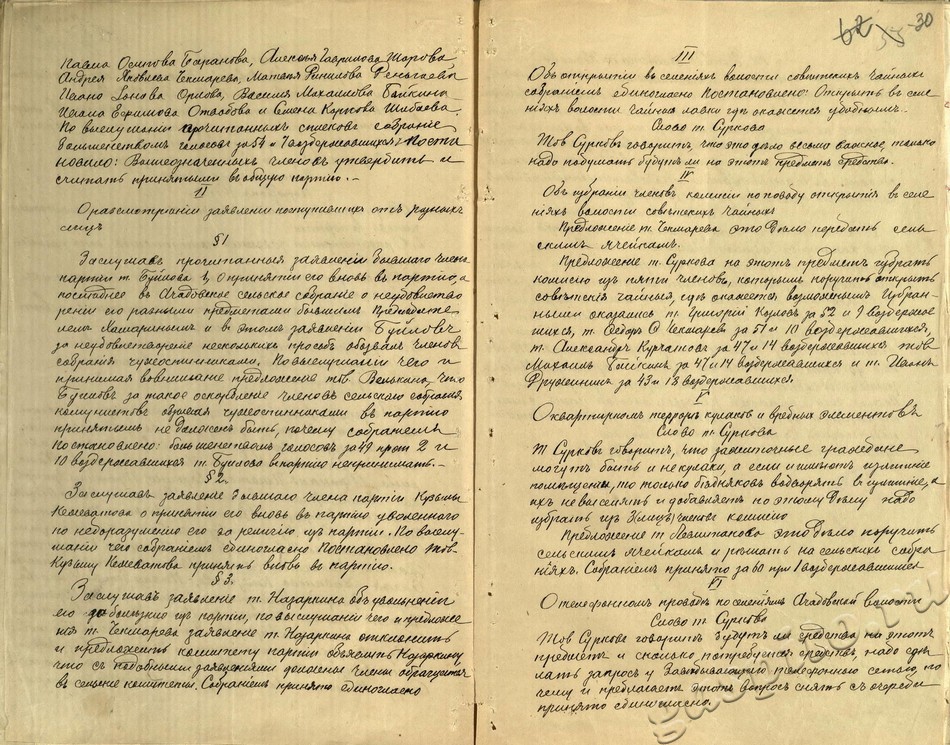 Павла Осипова Баранова, Алексея Гаврилова Шарова
Андрея Яковлева Чекмарева, Матвея
Ивана Орлова, Василия Михайлова Байкина
Ивана Ефимова и Семена Карпова
По выслушании прочитанных списков собрание
большинством голосов за 54 и 7 воздержавшихся поста
новило: Вышеозначенных членов утвердить и
считать принятыми в общую партию. –
II
О рассмотрении заявлении поступивших отъ разныхъ
лицъ
§ 1
Заслушавъ прочитанныя заявлении бывшаго члена
партии т. Буйлова 1, о принятии его вновь в партию, а
последнее в Агадовское сельское собрание о неудовлетво
рении его разными предметами бывшим Председате
лем и в этом заявлении Буйловъ
за неудовлетворение нескольких просьб обозвал членов
собрания чужеспинниками. По выслушании чего и
принимая во внимание предложение тов. Волькина, что
Буйловъ за такое оскорбление членовъ сельскаго собрания
коммунистов обозвал чужеспинниками в партию
принятымъ не должен быть, почему собранием
Постановлено: большинством голосов за 49 прот. 2 и
10 воздержавшихся т. Буйлова в партию непринимать. –
§ 2.
Заслушав заявление бывшаго члена партии Кузьмы
Келеватова о принятии его вновь в партию уволеннаго
по недоразумению его за религию из партии. По выслу-
шании чего собранием единогласно Постановлено Тов.
Кузьму Келеватова принять вновь в партию.
§ 3.
Заслушав заявление т. Назаркина об увольнении
его за болезнию из партии, по выслушании чего и предложе
ния т. Чекмарева заявление т. Назаркина отклонить
и предложить комитету партии объявить Назаркину
что с подобными заявлениями должены члены обращаться
в сельские комитеты. Собранием принято единогласно
62 30
III
Об открытии в селениях волости советских чайных
собранием единогласно Постановлено: Открыть в селе
ниях волости чайная лавки где окажется удобным.
Слово т. Суркова
Тов Сурковъ говорит, что это дело весьма важное, только
надо подумать будут ли на этот предмет средства.
IV
Об избрании членов комисии по поводу открытия в селе
ниях волости советских чайных
Предложение т. Чекмарева это дело передать сель
ским ячейкам.
Предложение т. Суркова на этот предмет избрать
комисию из пяти членов, которым поручить открыть
советския чайныя, где окажется возможным Избран-
ными оказались т. Григорий Козлов за 52 и 9 воздержав
шихся, т. Федор Чекмарев за 51 и 10 воздержавшихся,
т. Александр Курчатов за 47 и 14 воздержавшихся тов
Михаил Байкин за 47 и 14 воздержавшихся и т. Иван
Дружинин за 43 и 18 воздержавшихся.
V
О квартирном террори кулаков и вредных элементов
Слово т. Суркова
Т Сурков говорит, что зажиточные граждане
могут быть и не кулаки, а если и имеют излишние
помещения, то только бедняков водворять в излишние, а
их не выселять и добавляет по этому делу надо
избрать из 3 лиц комисию
Предложение т. это дело поручить
сельским ячейкам и решать на сельских собра
ниях. Собранием принято за 60 при 1 воздержавшимся
VI
О телефонном проводе по селениям Агадовской волости
Слово т. Суркова
Тов Сурков говорит будут ли средства на этот
предмет и сколько потребуется средств, надо сде
лать запрос у Заведывающаго телефонною сетью, по
чему и предлагает этот вопрос снять с очереди
принято единогласно.